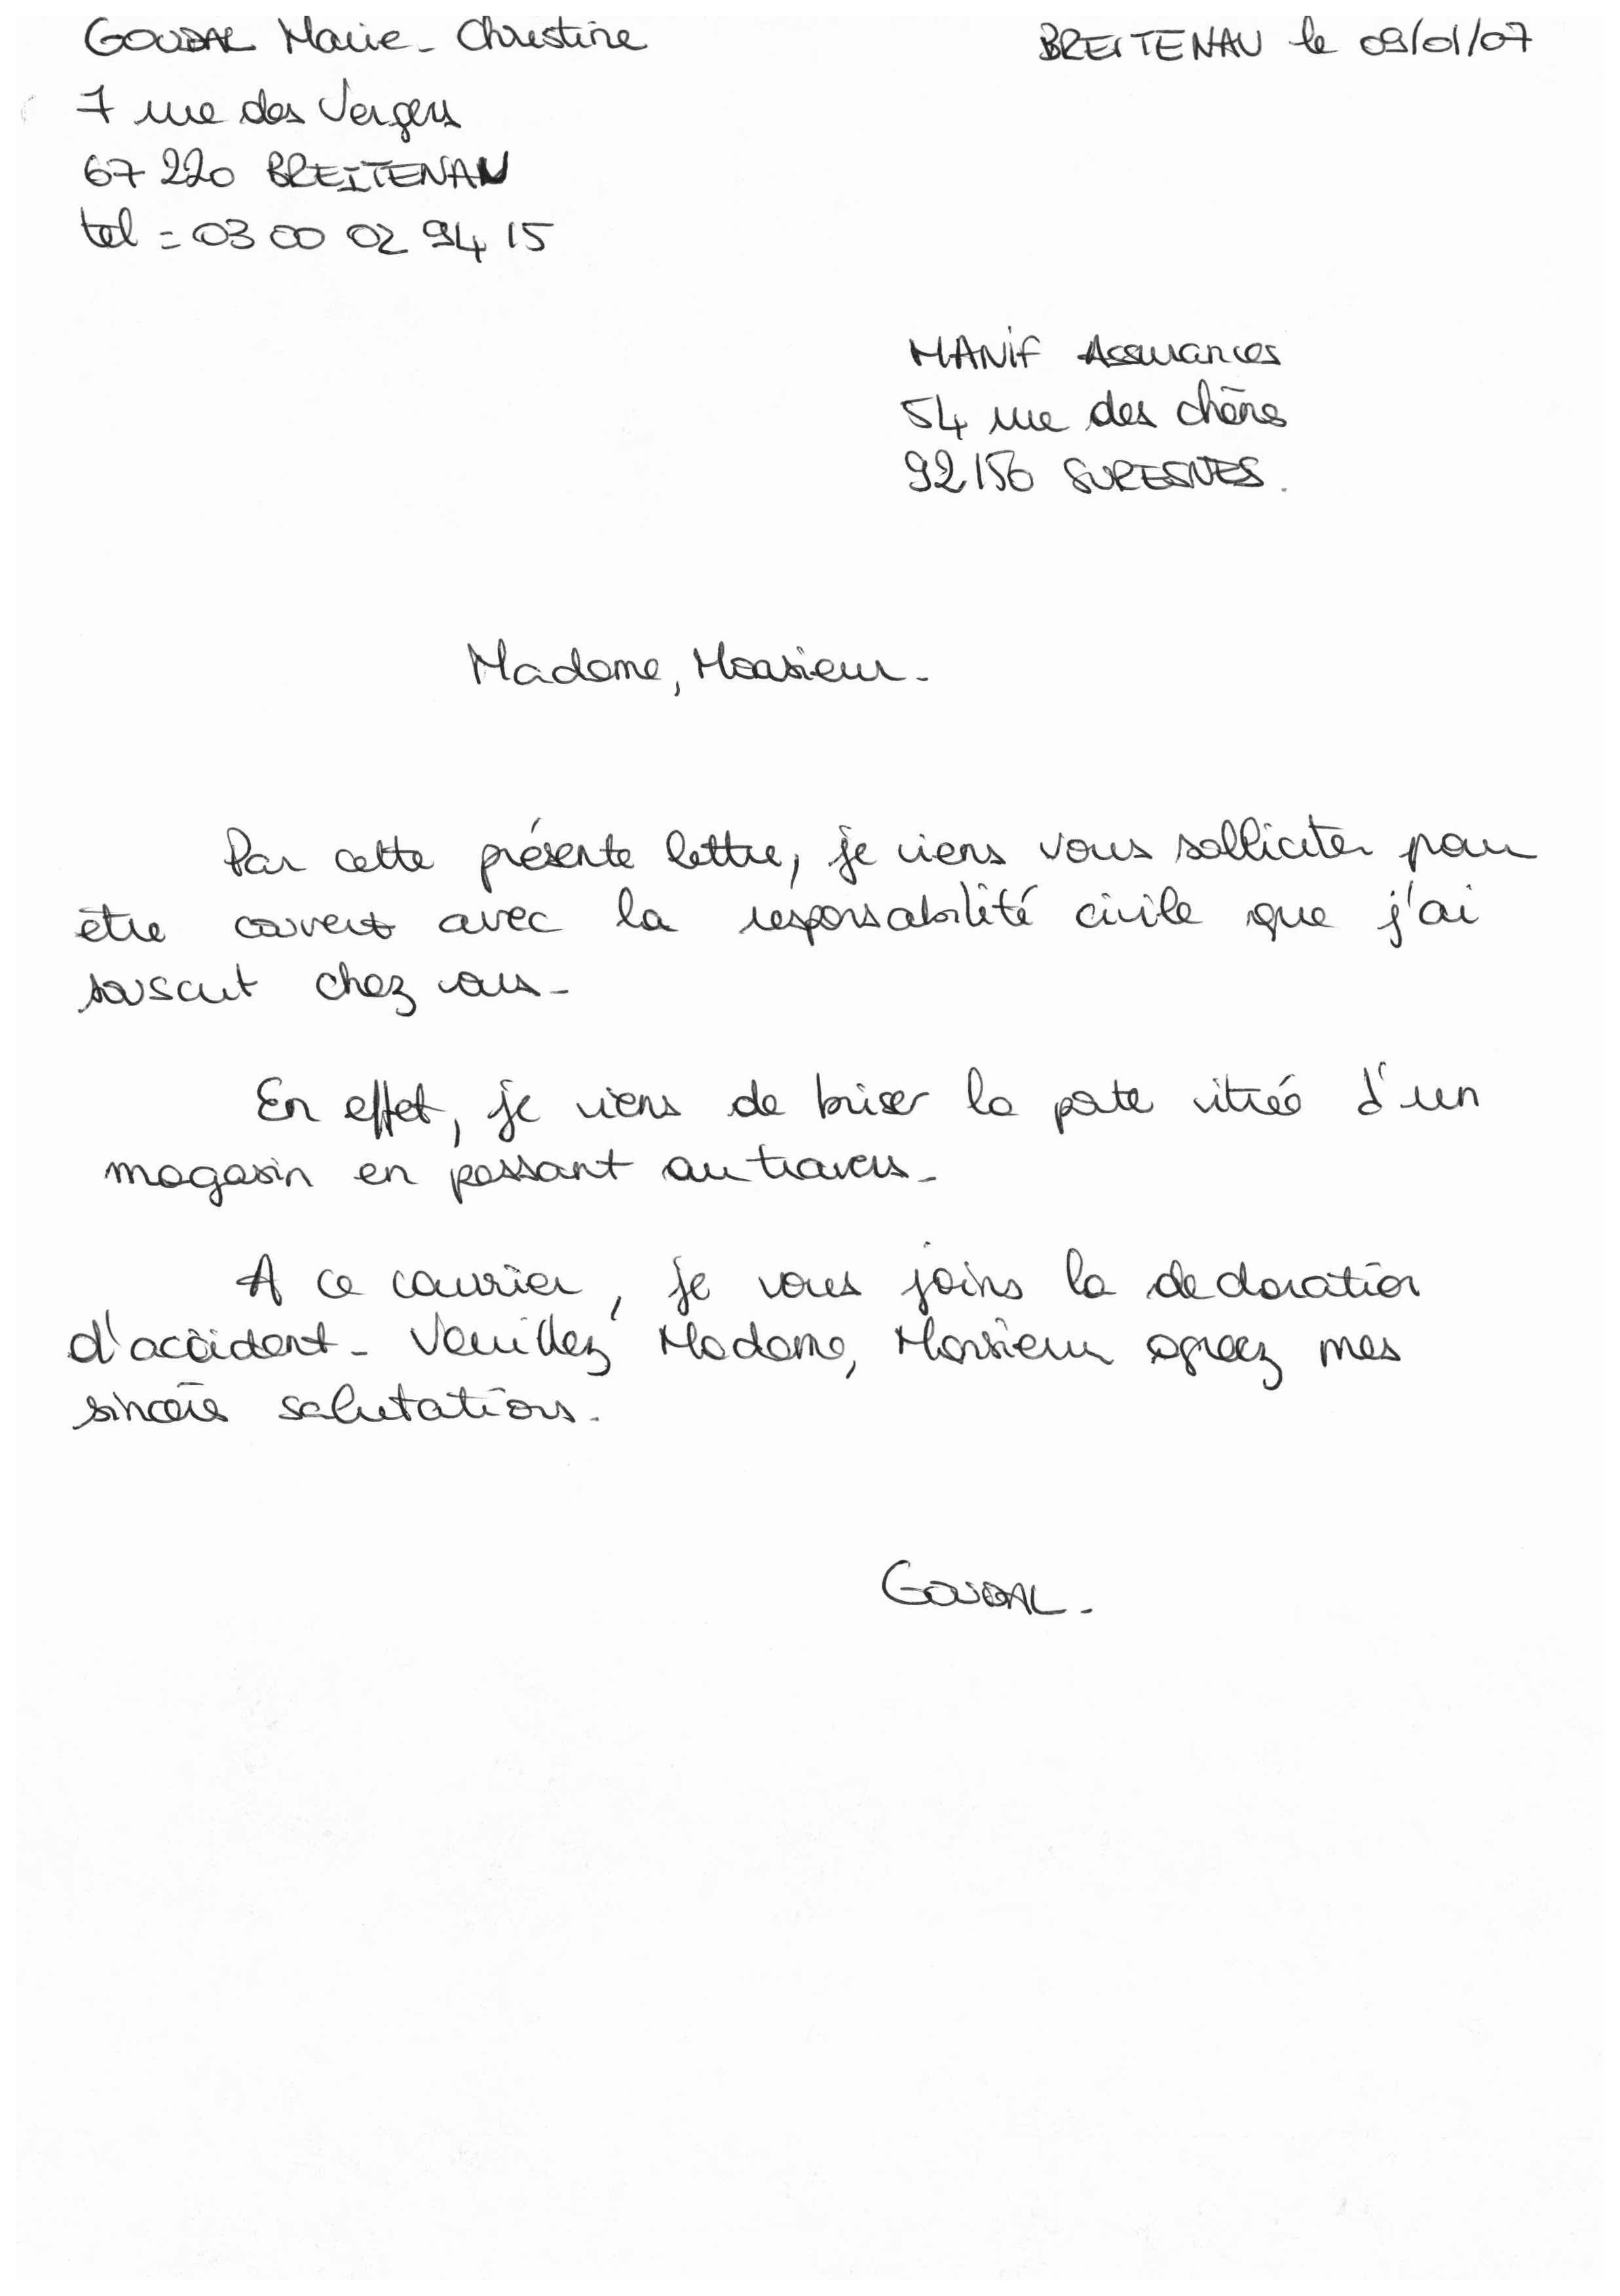 GOUDAL Marie-Christine
BREITENAU le 09/01/07
7 rue des Vergers
67 220 BREITENAU
tel = 03 00 02 94 15
MANIF Assurances
54 rue des chênes
92150 SURESNES.
Madame, Monsieur.
Par cette présente lettre, je viens vous solliciter pour
être couvert avec la responsabilité civile que j'ai
souscrit chez vous.
En effet, je viens de briser la porte vitrée d'un
magasin en passant au travers.
A ce courrier, je vous joins la declaration
d'accident. Veuillez Madame, Monsieur agréez mes
sincères salutations.
GOUDAL.